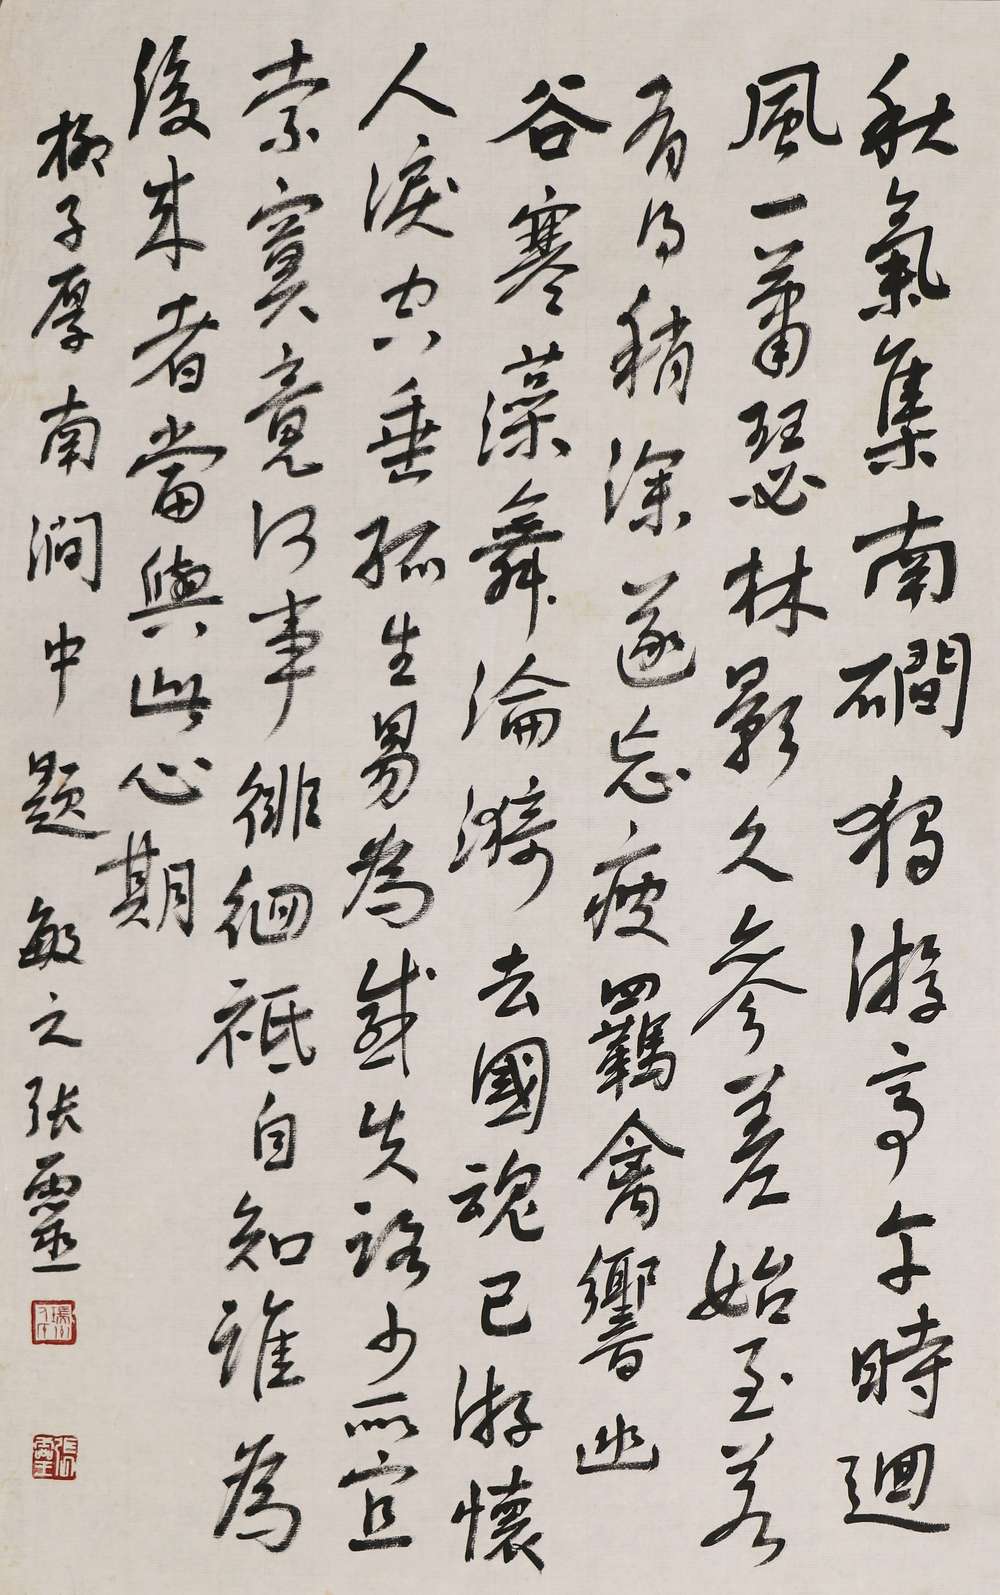 秋氣集南磵獨游亭午時迴
風一蕭瑟林影久參差始至若
有得稍深遂忘疲羈禽響幽
谷寒藻舞淪漪去國魂已游懷
人淚空垂孤生易為感失路少所宜
索寞竟何事徘徊祗自知誰為
後來者當與此心期
柳子厚南澗中題 敏之張靈
張靈